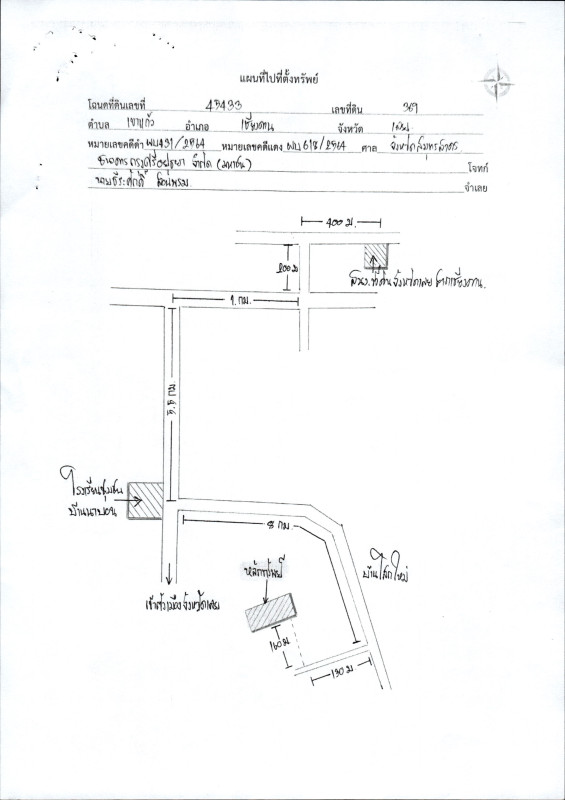 แผนที่ไปที่ตั้งทรัพย์
โฉนดที่ดินเลขที่ 45433 เลขที่ดิน 369
ตำบล เขาแก้ว อำเภอ เชียงคาน จังหวัด เลย
หมายเลขคดีดำ ผบ431/2564 หมายเลขคดีแดง ผบ618/2564 ศาล จังหวัดสมุทรสาคร
ธนาคารกรุงศรีอยุธยา จำกัด (มหาชน) โจทก์
นายธีระศักดิ์ จำเลย
400 ม.
200 ม
สนง.ที่ดินจังหวัดเลย สาขาเชียงคาน.
1 กม.
5.5 กม.
โรงเรียนชุมชน
บ้านนาบอน
8 กม.
บ้านโสกใหม่
หลักทรัพย์
เข้าตัวเมืองจังหวัดเลย
160 ม
130 ม